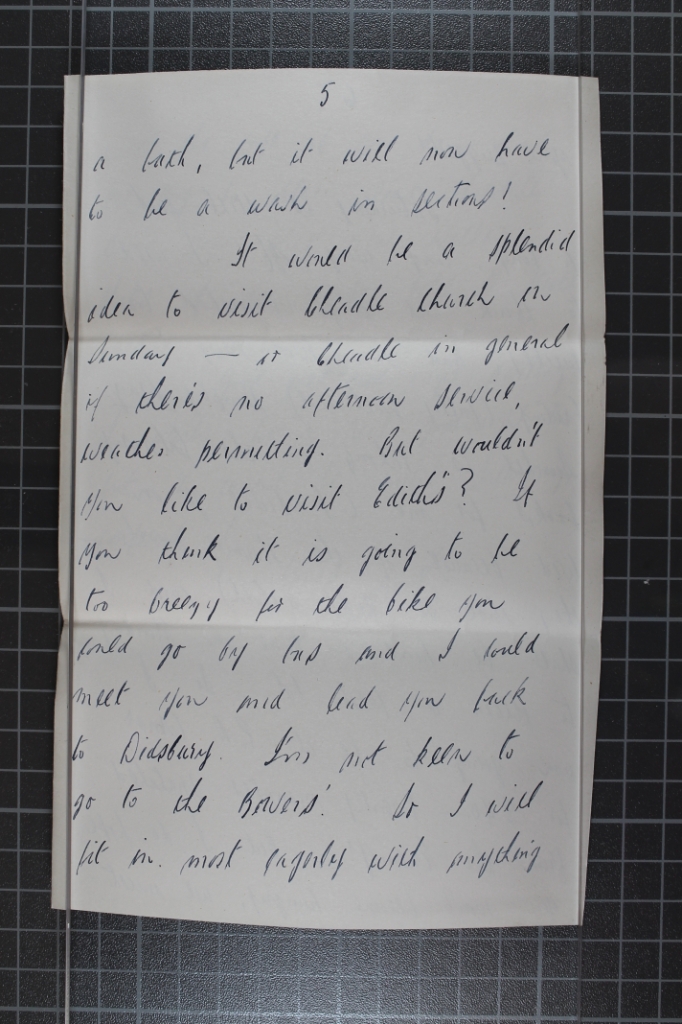 5
a bath, but it will now have
to be a wash in sections!
It would be a splendid
idea to visit Cheadle Church on
Sunday — or Cheadle in general
if there's no afternoon service,
weather permitting. But wouldn't
you like to visit Edith's? If
you think it is going to be
too breezy for the bike you
could go by bus and I could
meet you and lead you back
to Didsbury. I'm not keen to
go to the Bowers'. So I will
fit in most eagerly with anything